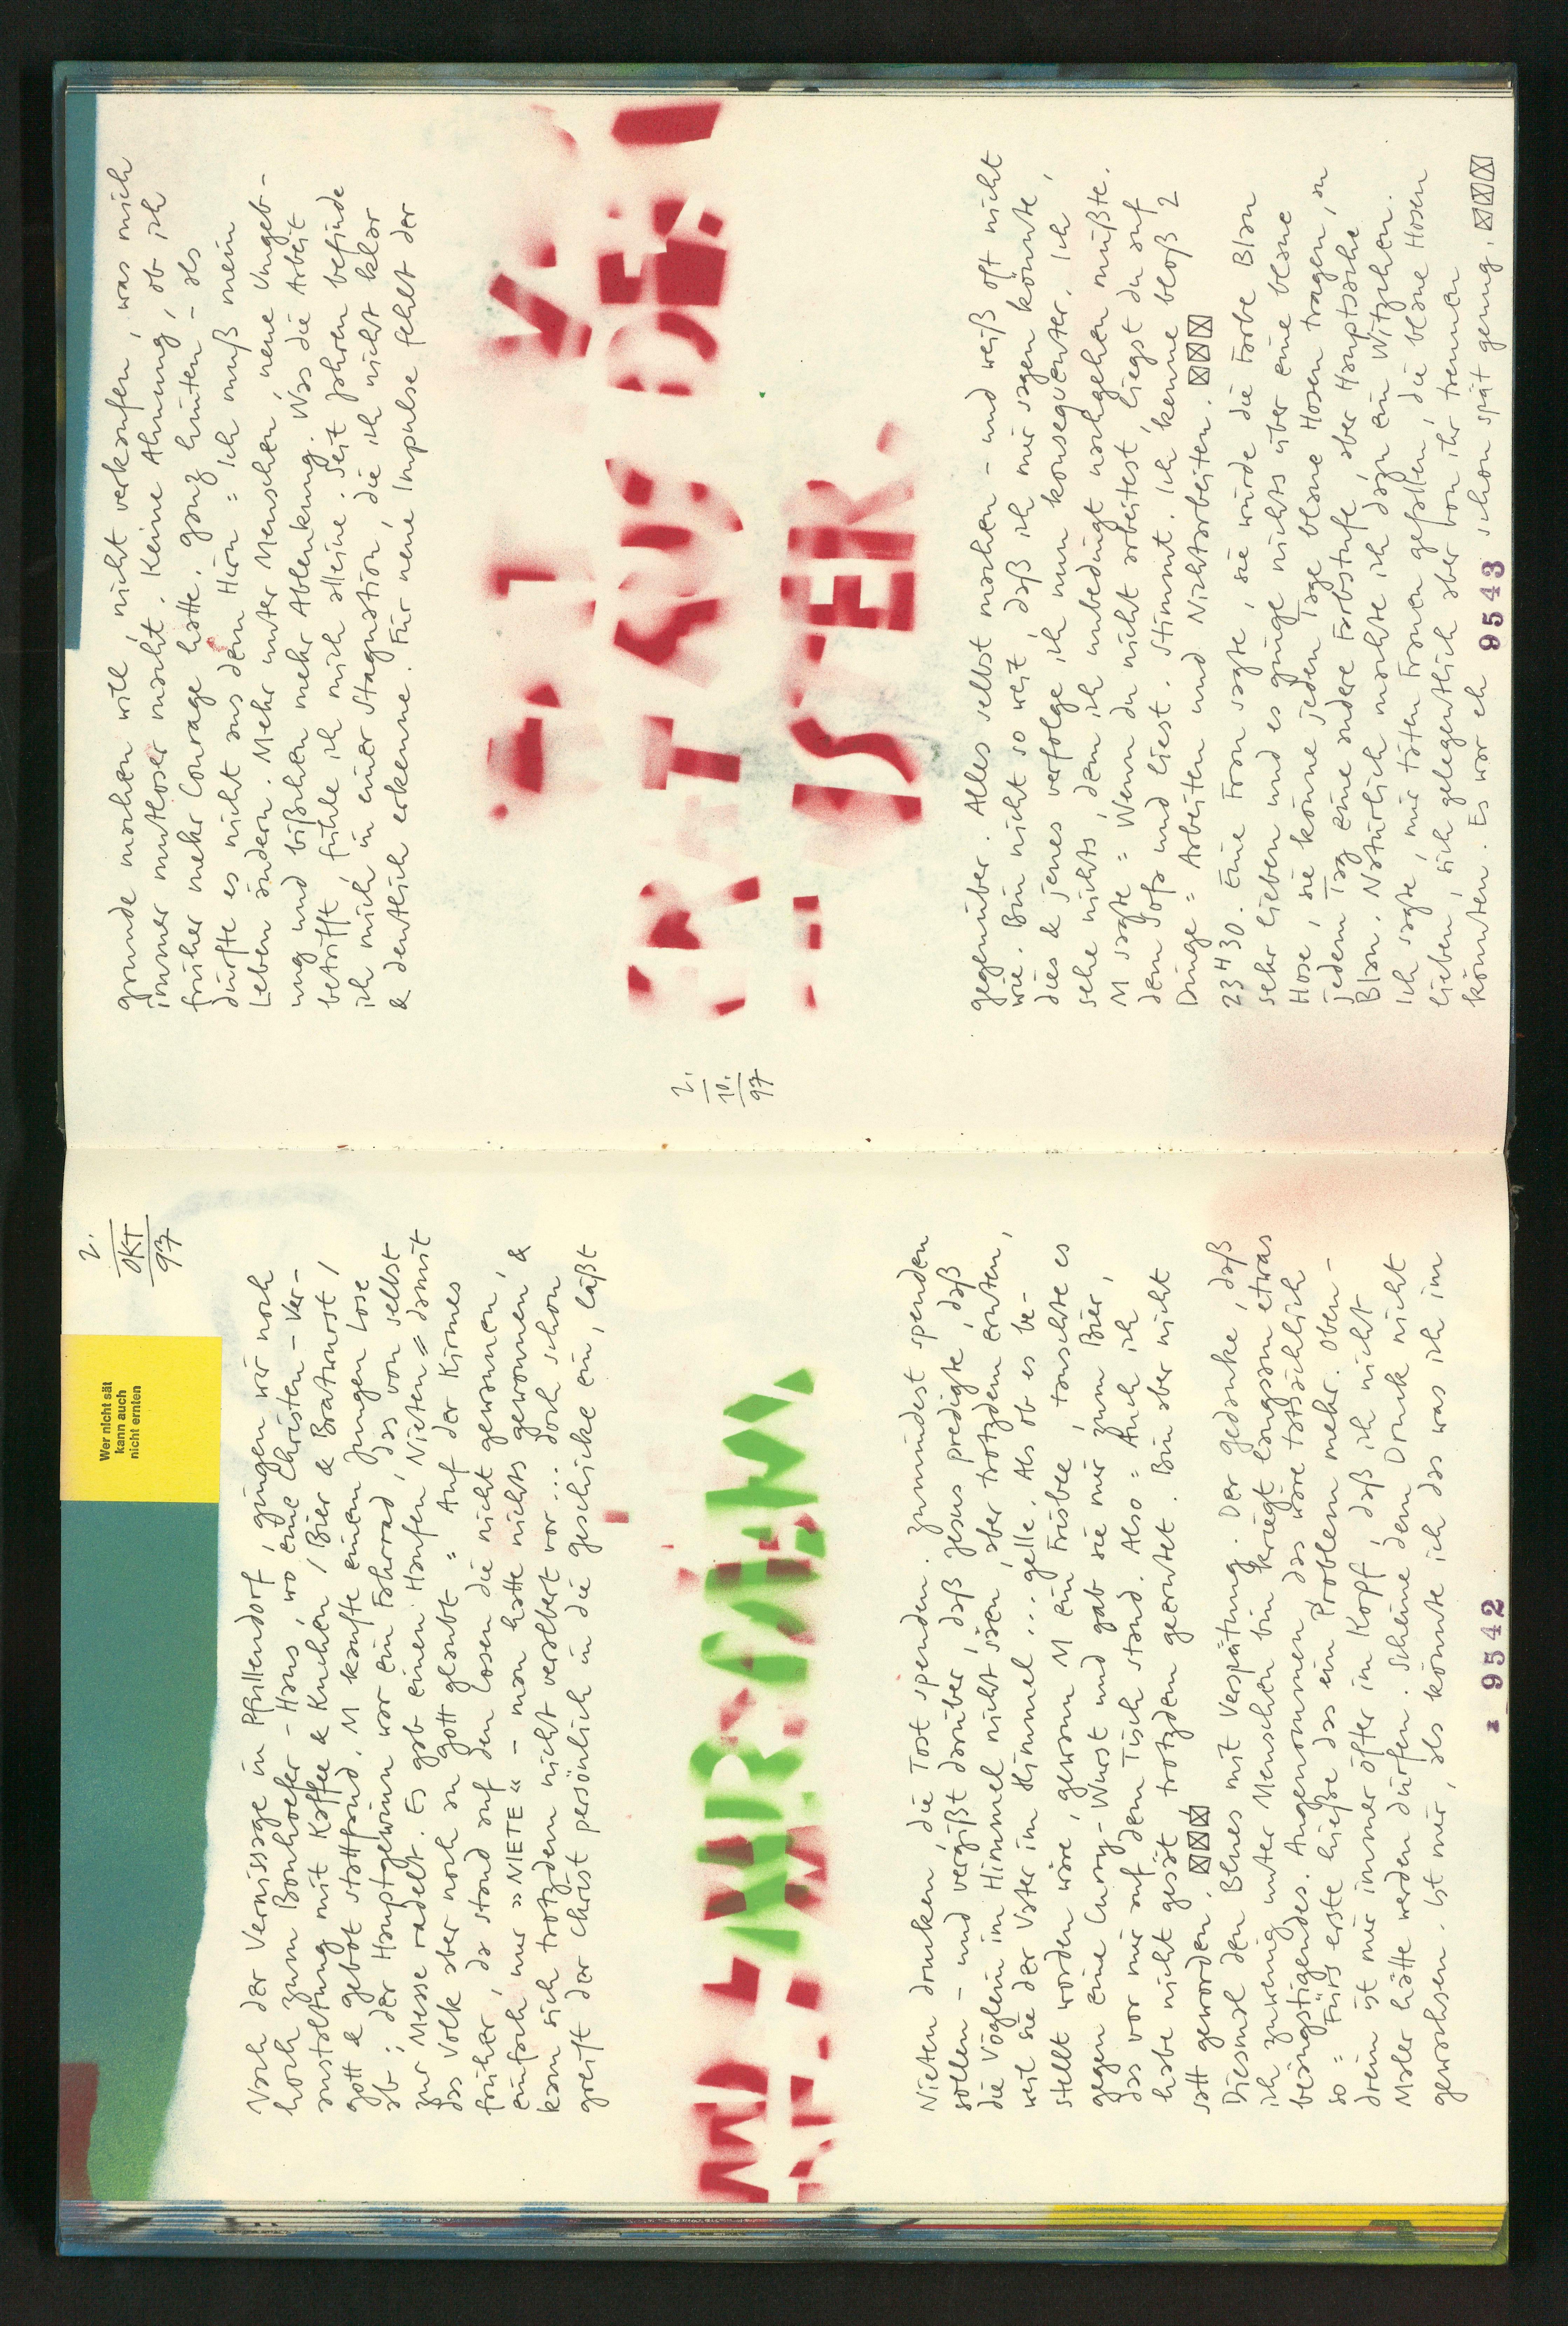 2.
OKT
97
Wer nicht sät
kann auch
nicht ernten
Nach der Vernissage in Pfullendorf, gingen wir noch
hoch zum Bonhoefer-Haus, wo eine Christen-Ver-
anstaltung mit Kaffee & Kuchen, Bier & Bratwurst,
Gott & Gebot stattfand. M kaufte einem Jungen Lose
ab; der Hauptgewinn war ein Fahrrad, das von selbst
zur Messe radelt. Es gab einen Haufen Nieten = damit
das Volk aber noch an Gott glaubt = Auf der Kirmes
früher, da stand auf den Losen die nicht gewannen,
einfach nur »NIETE« - man hatte nichts gewonnen &
kam sich trotzdem nicht veralbert vor ... doch schon
greift der Christ persönlich in die Geschicke ein, läßt
Nieten drucken, die Tost spenden. Zumindest spenden
sollen - und vergißt darüber, daß Jesus predigte, daß
die Vöglein im Himmel nicht säen, aber trotzdem ernten,
weil sie der Vater im Himmel ... gelle. Als ob es be-
stellt worden wäre, gewann M ein Frisbee, tauschte es
gegen eine Curry-Wurst und gab sie mir zum Bier,
das vor mir auf dem Tisch stand. Also = Auch ich
habe nicht gesät trotzdem geerntet. Bin aber nicht
satt geworden.
Diesmal den Blues mit Verspätung. Der Gedanke, daß
ich zuwenig unter Menschen bin kriegt langsam etwas
beängstigendes. Angenommen, das wäre tatsächlich
so = Fürs erste hieße das ein Problem mehr. Oben-
drein ist mir immer öfter im Kopf, daß ich nicht
Maler hätte werden dürfen. Scheine dem Druck nicht
gewachsen. Ist mir, als könnte ich das was ich im
9542
2.
10.
97
Grunde machen will, nicht verkaufen, was mich
immer mutloser macht. Keine Ahnung, ob ich
früher mehr Courage hatte. Ganz hinten - als
dürfte es nicht aus dem Hirn = Ich muß mein
Leben ändern. Mehr unter Menschen, neue Umgeb-
ung und bißchen mehr Ablenkung. Was die Arbeit
betrifft, fühle ich mich alleine. Seit Jahren befinde
ich mich in einer Stagnation, die ich nicht klar
& deutlich erkenne. Für neue Impulse fehlt der
ISTER.
gegenüber. Alles selbst machen - und weiß oft nicht
wie. Bin nicht so weit, daß ich mir sagen könnte,
dies & jenes verfolge ich nun konsequenter. Ich
sehe nichts, dem ich unbedingt nachgehen müßte.
M sagte = Wenn du nicht arbeitest, liegst du auf
dem Sofa und liest. Stimmt. Ich kenne bloß 2
Dinge = Arbeiten und Nichtarbeiten.
23H30. Eine Frau sagte, sie würde die Farbe Blau
sehr lieben und es ginge nichts über eine blaue
Hose, sie könne jeden Tage blaue Hosen tragen, an
jedem Tag eine andere Farbstufe, aber Hauptsache
Blau. Natürlich machte ich dazu ein Witzchen.
Ich sagte, mir täten Frauen gefallen, die blaue Hosen
lieben, sich gelegentlich aber von ihr trennen
könnten. Es war eh schon spät genug.
9543